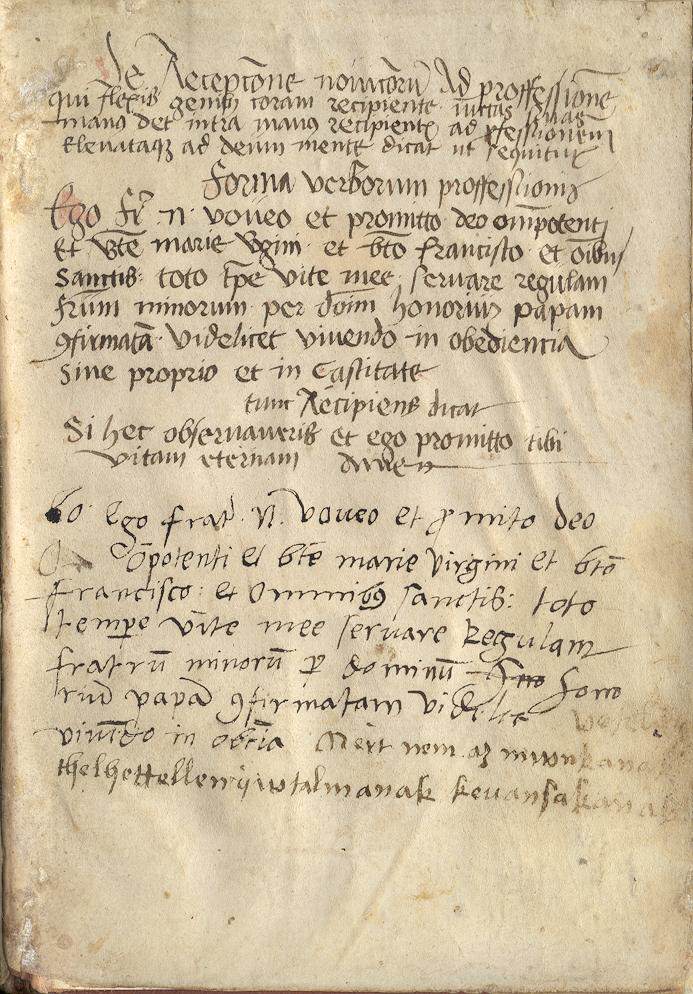 de Receptione novitiorū Ad proffessionē
qui flexis genibȝ coram recipiente iūctas
manus det intra manus recipientis ad pfessionem
Elevataqȝ ad deum mente dicat ut sequitur
forma verborum proffessionis
Ego fr̄ .n. voveo et promitto deo om̄potenti
Et bt̄e marie v̄gini et bt̄o francisco et oībus
Sanctis: toto tp̄e vite mee servare regulam
fr̄um minorum per doīm honorium papam
ꝯfirmatā videlicet vivendo in obediencia
Sine proprio et in Castitate
tunc Recipiens dicat
Si hec observaveris et ego promitto tibi
vitam eternam Amen
Ego frat. N. voveo et ꝓmito deo
o͞potenti et bt̄e marie virgini et bt̄o
francisco: et omnibȝ sanctis: toto
tempe vite mee servare Regulam
fratrū minorū ꝑ dominū hono
riū papā ꝯfirmatam videlice
vivēdo in obēia Mert nem az mwnkanak